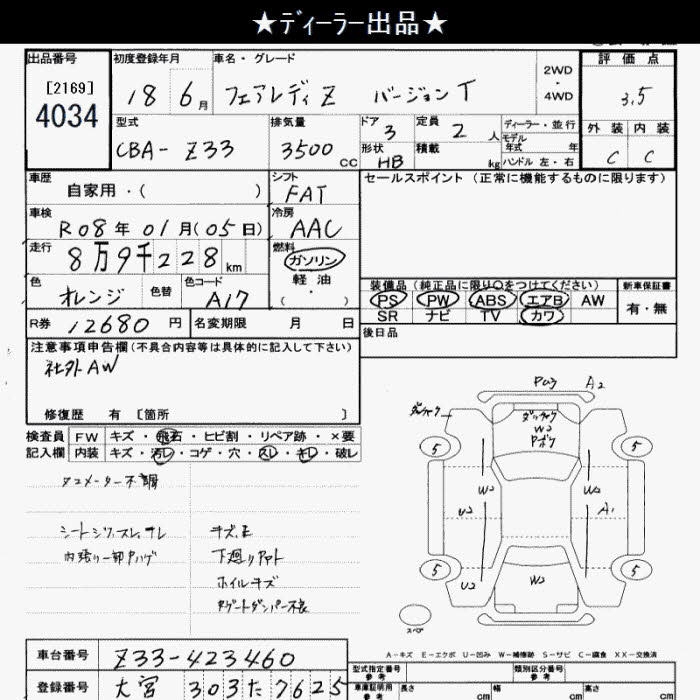 ★ディーラー出品★
出品番号
[2169]
4034
初度登録年月
18年 6月
車名・グレード
フェアレディZ バージョンT
2WD
・
4WD
評価点
3.5
外装 内装
C C
型式
CBA-Z33
排気量
3500cc
ドア 3
形状 HB
定員 2人
積載 kg
ディーラー・並行
モデル年式 年
ハンドル 左・右
車歴
自家用・( )
シフト
FAT
セールスポイント (正常に機能するものに限ります)
車検
R08年01月(05日)
冷房
AAC
走行
8万9千228km
燃料
ガソリン
軽油
( ・ )
色
オレンジ
色替
色コード
A17
装備品 (純正品に限り○をつけてください)
PS PW ABS エアB AW
SR ナビ TV カワ
新車保証書
有・無
R券 12680円
名変期限 月 日
後日品
注意事項申告欄(不具合内容等は具体的に記入して下さい)
社外AW
修復歴 有 [箇所 ]
検査員記入欄
FW キズ・飛石・ヒビ割・リペア跡・×要
内装 キズ・汚レ・コゲ・穴・スレ・キレ・破レ
タコメーター不調
シートシワ、スレ、キレ
内張り一部ウハゲ
キズ、E
下廻りサビ
ホイルキズ
Rゲートダンパー不良
Pロク A2
W2
5 5
W2 W2
U2 A1
5 5
U2 W2
スペア
A-キズ E-エクボ U-凹み W-補修跡 S-サビ C-腐食 XX-交換済
車台番号
Z33-423460
登録番号
大宮 303 た 7625
型式指定番号
参考
類別区分番号
参考
車庫証明用
参考
長さ cm
幅 cm
高さ cm